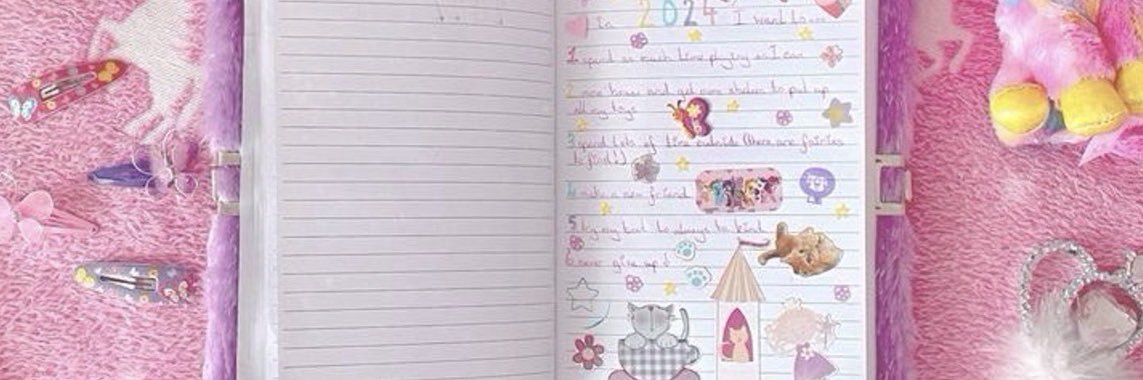 In 2024 I want to...
1. spend as much time playing as I can
2. move house and get more shelves to put up
all my toys
3. spend lots of time outside (there are fairies
to find!)
4. make a new friend
5. try my best to always be kind
6. never give up!